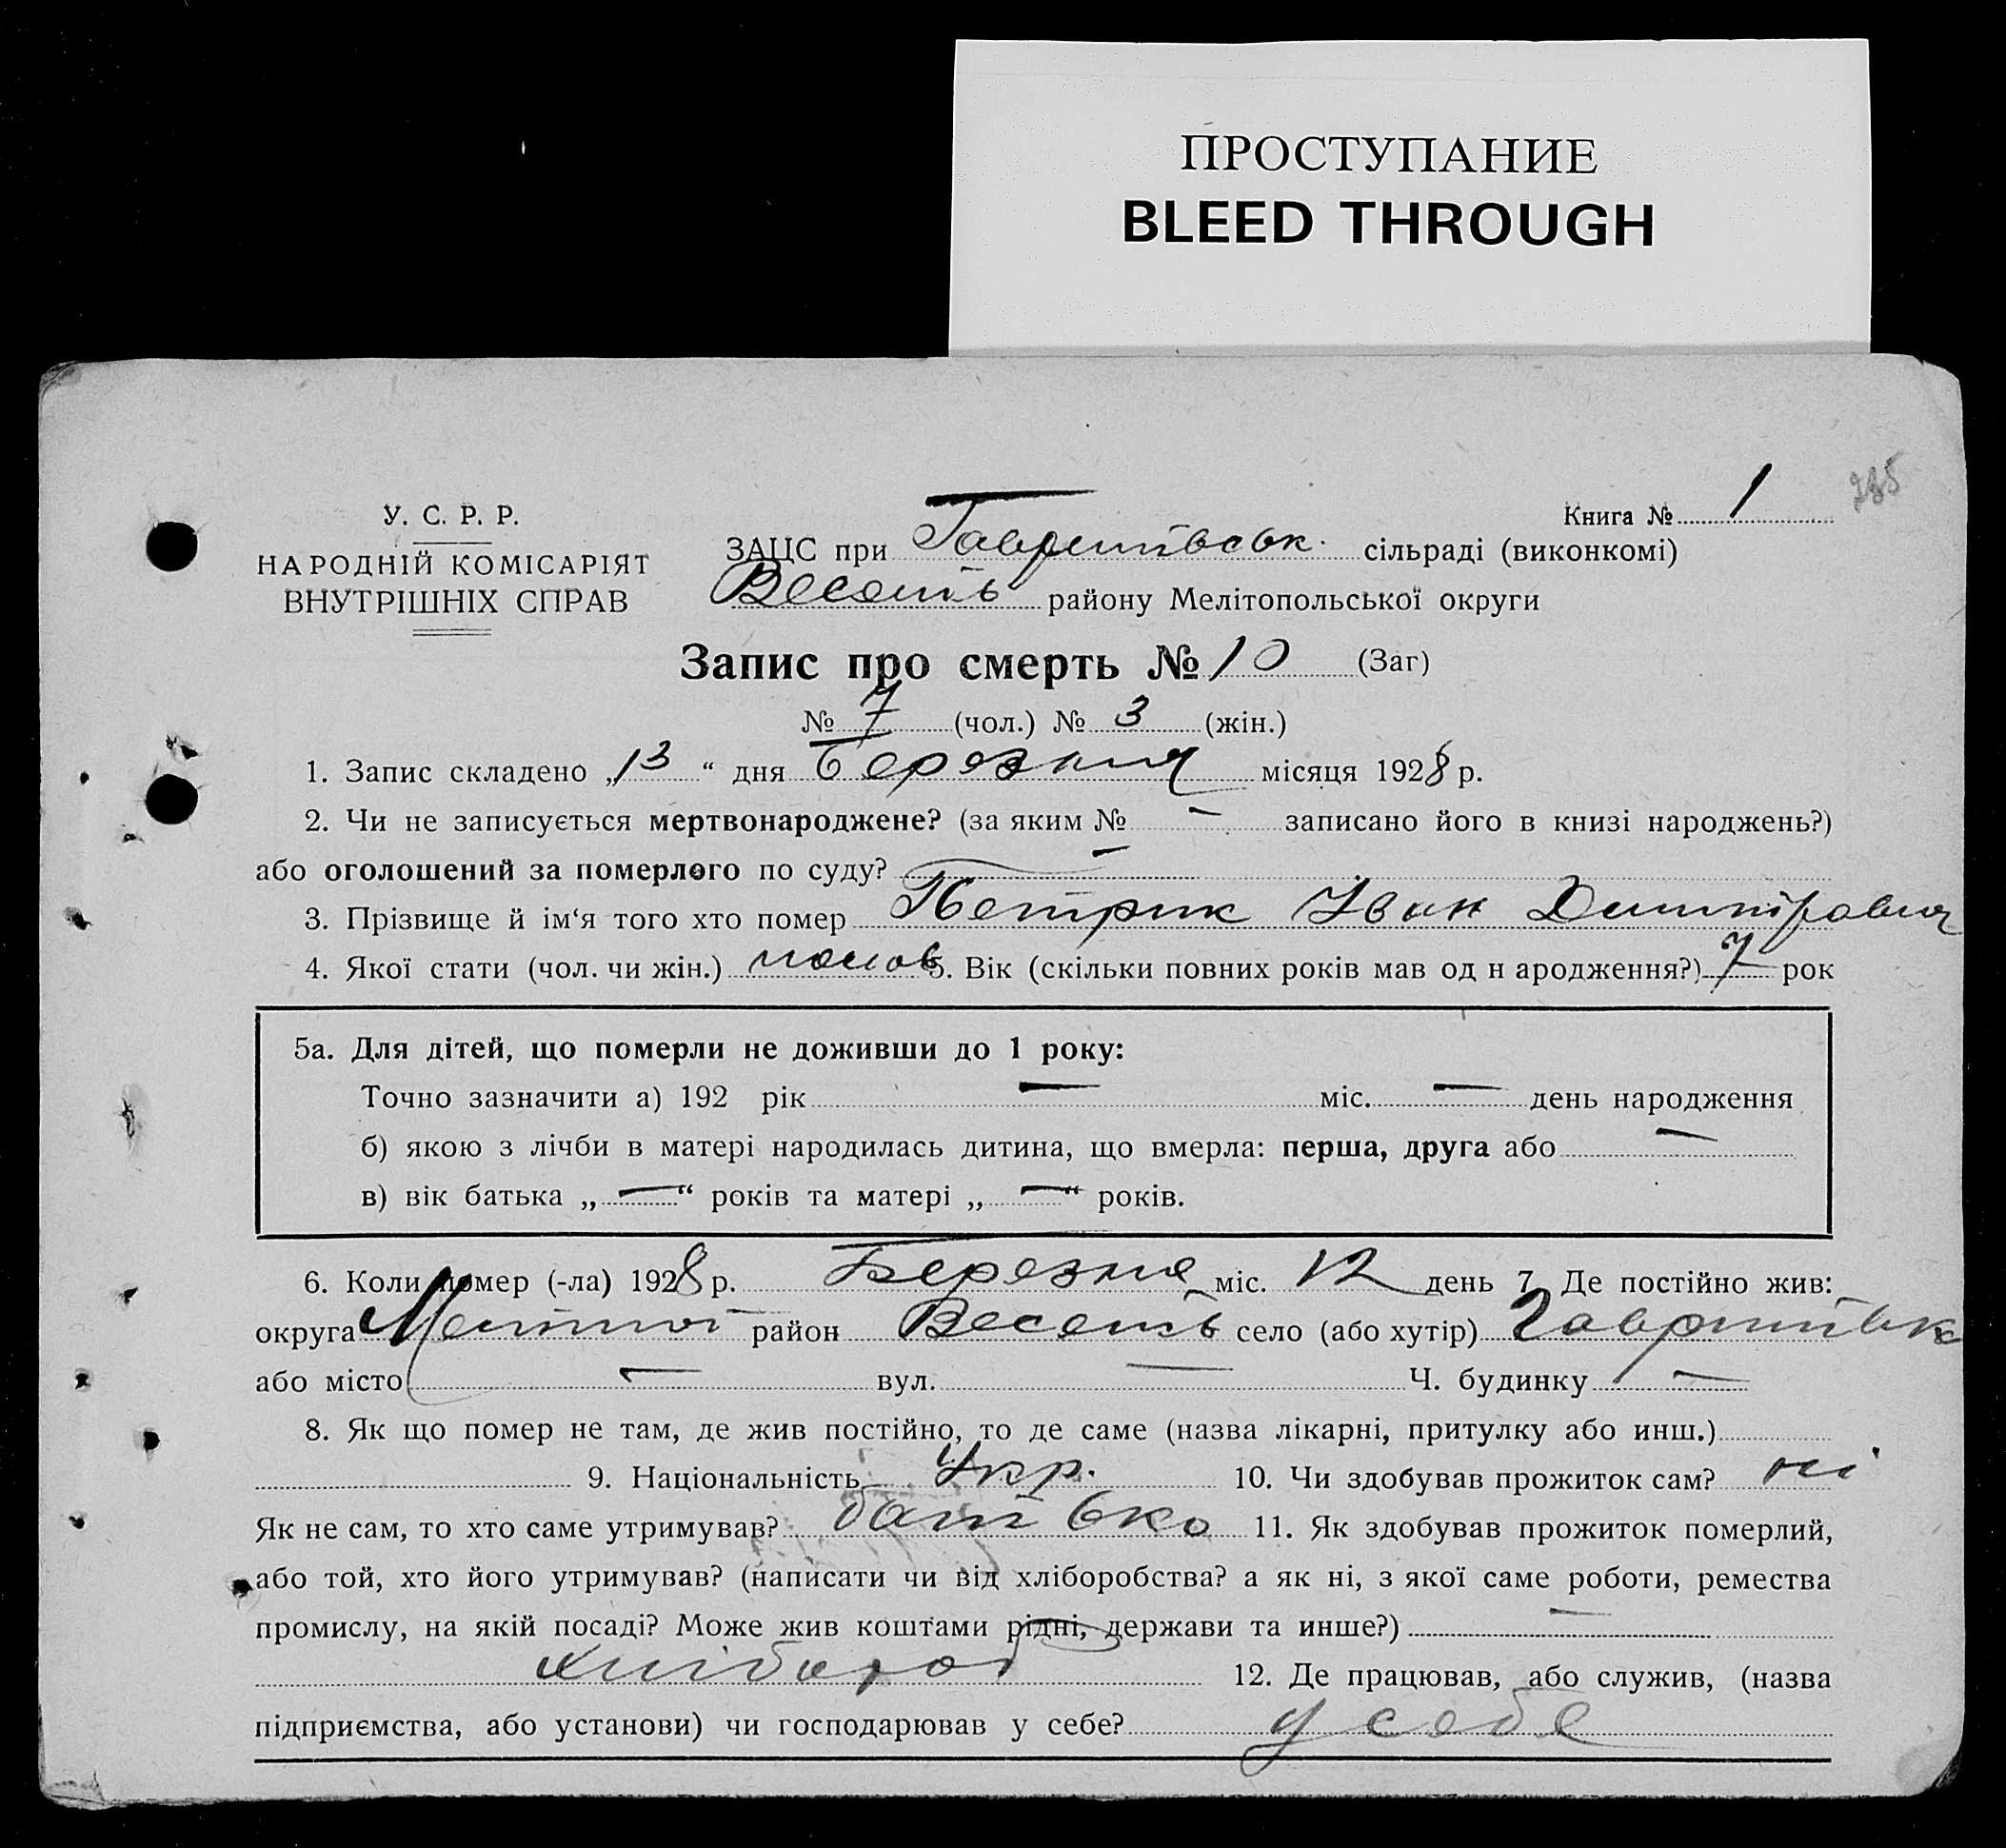 ПРОСТУПАНИЕ
BLEED THROUGH
235
У. С. Р. Р.
НАРОДНІЙ КОМІСАРІЯТ
ВНУТРІШНІХ СПРАВ
Книга № 1
ЗАЦС при Гаврилівськ. сільраді (виконкомі)
Веселів району Мелітопольської округи
Запис про смерть № 10 (Заг)
№ 7 (чол.) № 3 (жін.)
1. Запис складено „13“ дня Березня місяця 1928 р.
2. Чи не записується мертвонароджене? (за яким № — записано його в книзі народжень?)
або оголошений за померлого по суду? —
3. Прізвище й ім‘я того хто помер Петрик Іван Дмитрович
4. Якої стати (чол. чи жін.) чолов 5. Вік (скільки повних років мав од н ародження?) 7 рок
5а. Для дітей, що померли не доживши до 1 року:
Точно зазначити а) 192 рік — міс. — день народження
б) якою з лічби в матері народилась дитина, що вмерла: перша, друга або —
в) вік батька „—“ років та матері „—“ років.
6. Коли помер (-ла) 1928 р. Березня міс. 12 день 7. Де постійно жив:
округа Мелітоп район Веселів село (або хутір) Гаврилівка
або місто — вул. — Ч. будинку —
8. Як що помер не там, де жив постійно, то де саме (назва лікарні, притулку або инш.)
9. Національність Укр. 10. Чи здобував прожиток сам? ні
Як не сам, то хто саме утримував? батько 11. Як здобував прожиток померлий,
або той, хто його утримував? (написати чи від хліборобства? а як ні, з якої саме роботи, ремества
промислу, на якій посаді? Може жив коштами рідні, держави та инше?) —
хлібороб 12. Де працював, або служив, (назва
підприємства, або установи) чи господарював у себе? у себе